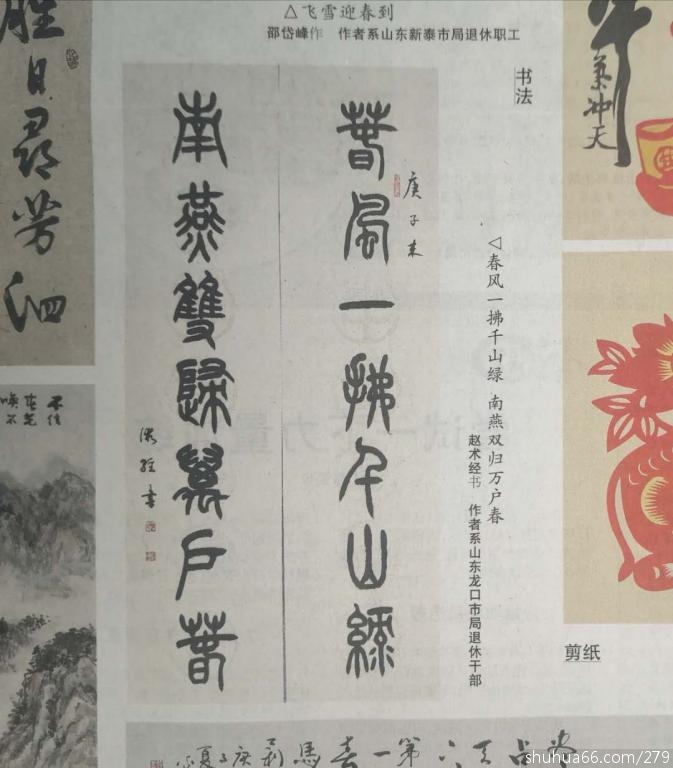 △飞雪迎春到
邵岱峰作 作者系山东新泰市局退休职工
书法
春風一拂千山綠
庚子末
南燕雙歸萬戶春
術經書
△春风一拂千山绿 南燕双归万户春
赵术经书 作者系山东龙口市局退休干部
胜日寻芳泗
牛
气冲天
剪纸
shuhua66.com/279